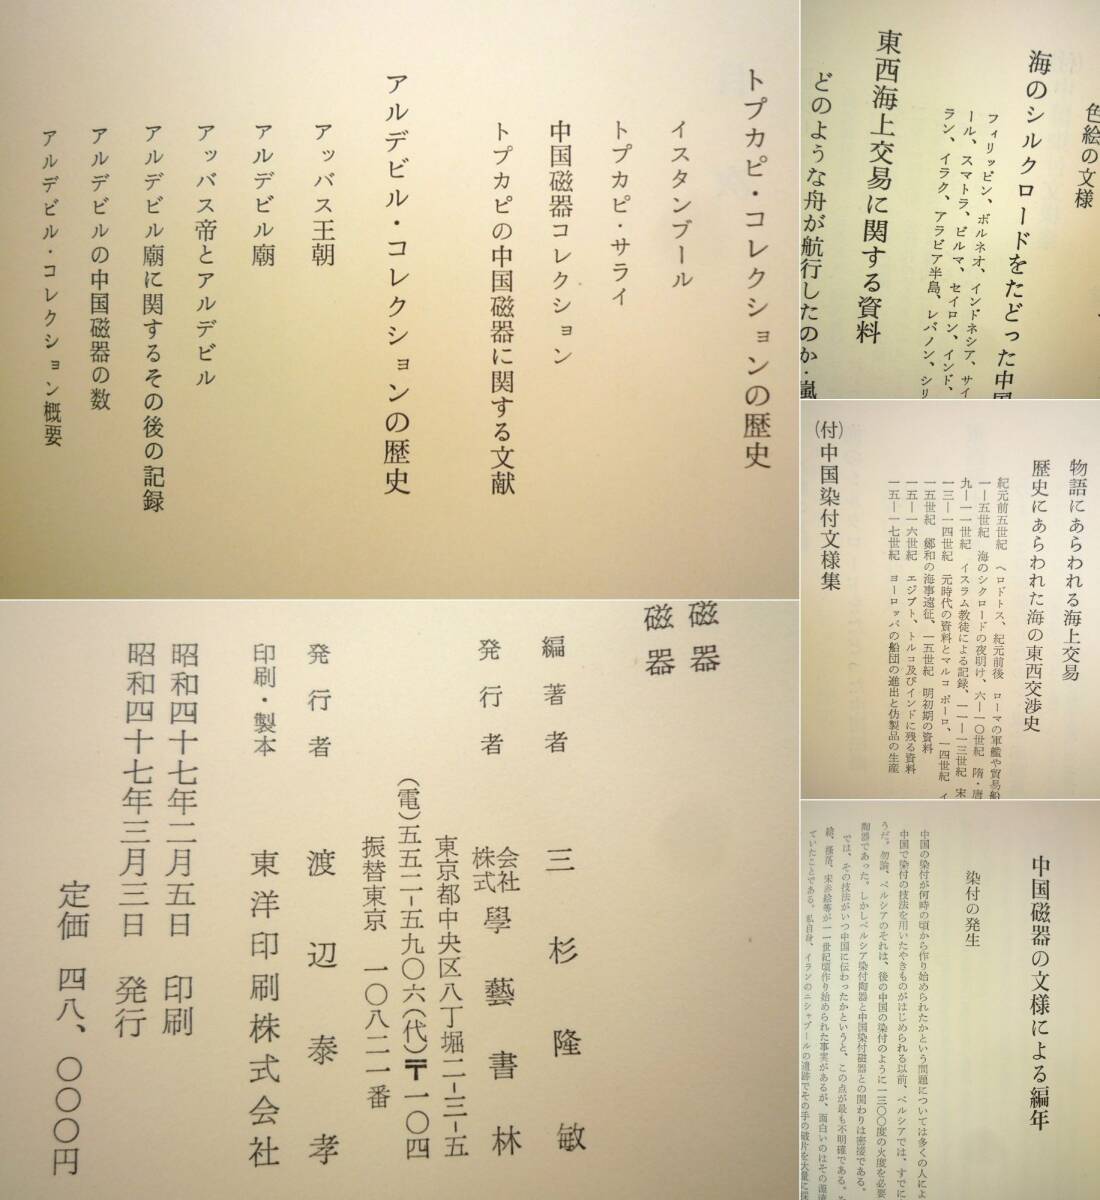 トプカピ・コレクションの歴史
イスタンブール
トプカピ・サライ
中国磁器コレクション
トプカピの中国磁器に関する文献
アルデビル・コレクションの歴史
アッバス王朝
アルデビル廟
アッバス帝とアルデビル
アルデビル廟に関するその後の記録
アルデビルの中国磁器の数
アルデビル・コレクション概要
色絵の文様
海のシルクロードをたどった中国
フィリッピン、ボルネオ、インドネシア、サイ
ール、スマトラ、ビルマ、セイロン、インド、
ラン、イラク、アラビア半島、レバノン、シリ
東西海上交易に関する資料
どのような舟が航行したのか・嵐
物語にあらわれる海上交易
歴史にあらわれた海の東西交渉史
紀元前五世紀 ヘロドトス、紀元前後 ローマの軍艦や貿易船
一―五世紀 海のシクロードの夜明け、六―一〇世紀 隋・唐
九―一一世紀 イスラム教徒による記録、一一―一三世紀 宋
一三―一四世紀 元時代の資料とマルコ ポーロ、一四世紀 イ
一五世紀 鄭和の海事遠征、一五世紀 明初期の資料
一五―一六世紀 エジプト、トルコ及びインドに残る資料
一五―一七世紀 ヨーロッパの船団の進出と仿製品の生産
(付)中国染付文様集
磁器
磁器
編著者 三杉隆敏
発行者 株式会社 學藝書林
東京都中央区八丁堀二―三―五
(電)五五二―五九〇六(代)〒一〇四
振替東京 一〇八二一番
発行者 渡辺泰孝
印刷・製本 東洋印刷株式会社
昭和四十七年二月五日 印刷
昭和四十七年三月三日 発行
定価 四八、〇〇〇円
中国磁器の文様による編年
染付の発生
中国の染付が何時の頃から作り始められたかという問題については多くの人によ
中国で染付の技法を用いたやきものがはじめられる以前、ペルシアでは、すでに
うだ。勿論、ペルシアのそれは、後の中国の染付のように一三〇〇度の火度を必要
陶器であった。しかしペルシア染付陶器と中国染付磁器との関わりは密接である。
では、その技法がいつ中国に伝わったかというと、この点が最も不明確である。
絵、掻落、宋赤絵等が一一世紀頃作り始められた事実があるが、面白いのはその源流
ていたことである。私自身、イランのニシャプールの遺跡でその手の破片を大量に採